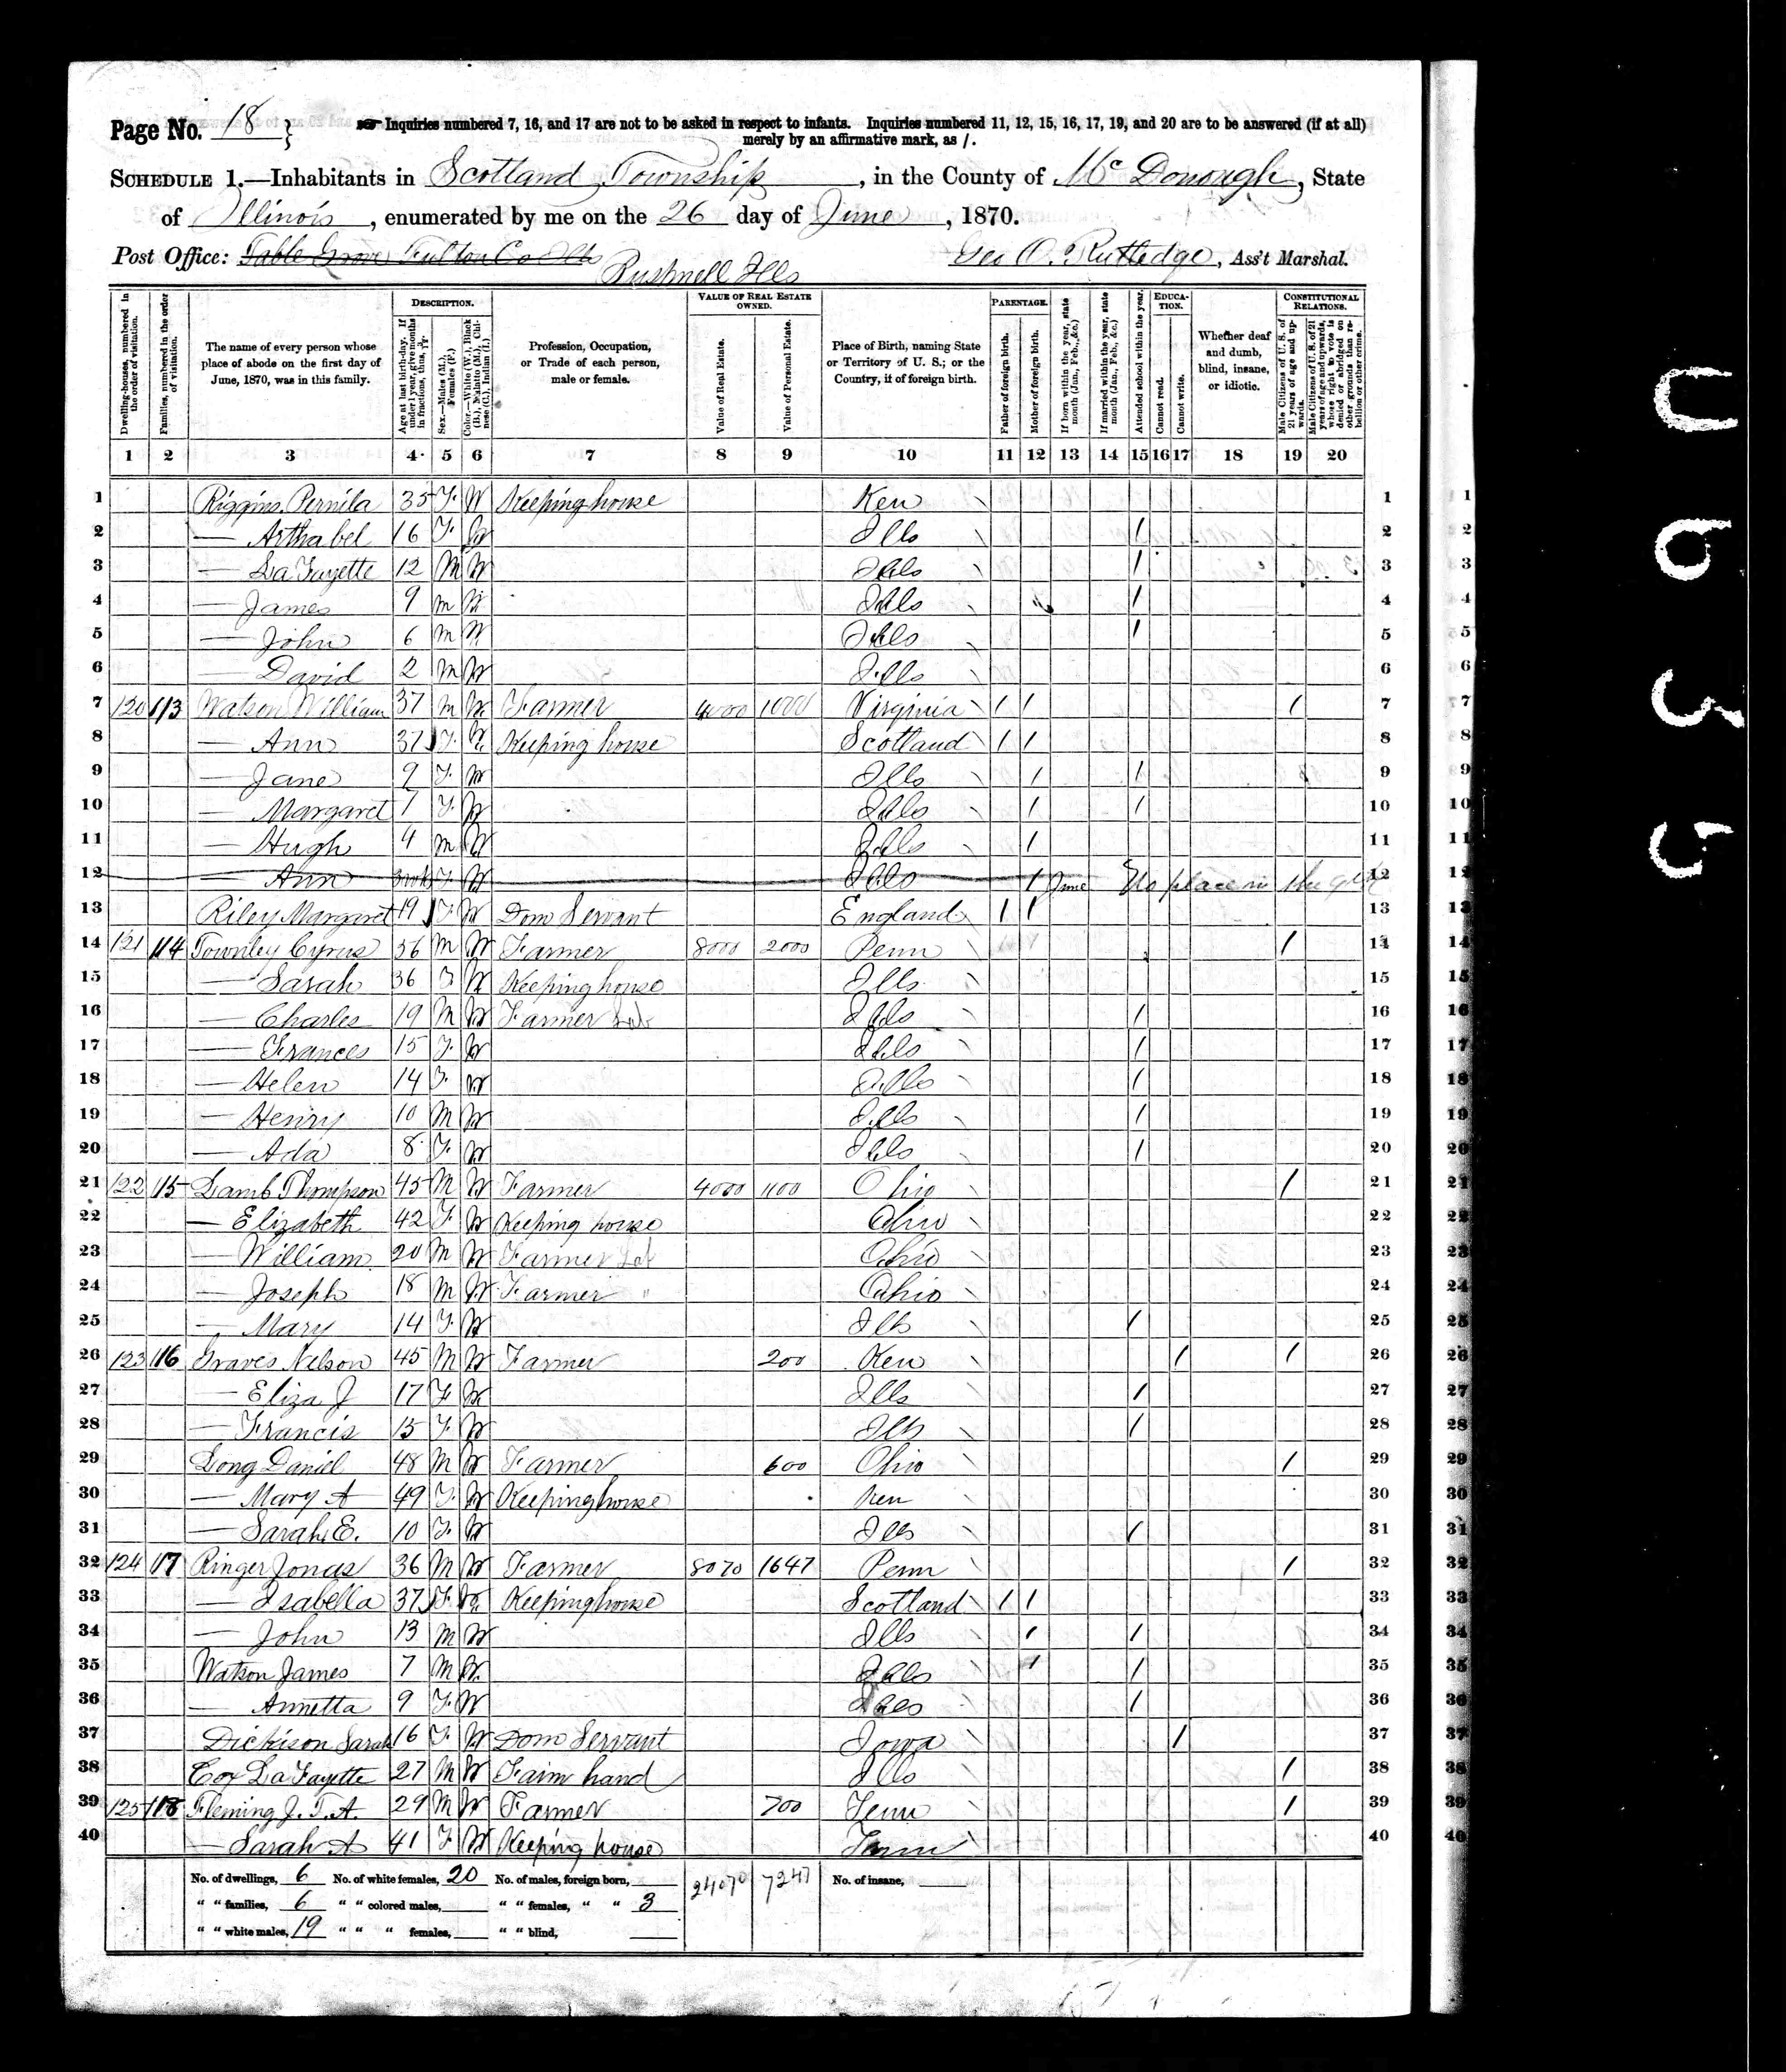 Page No. 18
Inquiries numbered 7, 16, and 17 are not to be asked in respect to infants. Inquiries numbered 11, 12, 15, 16, 17, 19, and 20 are to be answered (if at all)
merely by an affirmative mark, as /.
SCHEDULE 1.—Inhabitants in Scotland Township, in the County of McDonough, State
of Illinois, enumerated by me on the 26 day of June, 1870.
Post Office: Table Grove Fulton Co Ills
Bushnell Ills
Geo O. Rutledge, Ass't Marshal.
Dwelling-houses, numbered in the order of visitation.
Families, numbered in the order of visitation.
The name of every person whose place of abode on the first day of June, 1870, was in this family.
DESCRIPTION.
Age at last birth-day. If under 1 year, give months in fractions, thus, 3/12.
Sex.—Males (M.), Females (F.)
Color.—White (W.), Black (B.), Mulatto (M.), Chinese (C.), Indian (I.)
Profession, Occupation, or Trade of each person, male or female.
VALUE OF REAL ESTATE OWNED.
Value of Real Estate.
Value of Personal Estate.
Place of Birth, naming State or Territory of U. S.; or the Country, if of foreign birth.
PARENTAGE.
Father of foreign birth.
Mother of foreign birth.
If born within the year, state month (Jan., Feb., &c.)
If married within the year, state month (Jan., Feb., &c.)
Attended school within the year.
EDUCATION.
Cannot read.
Cannot write.
Whether deaf and dumb, blind, insane, or idiotic.
CONSTITUTIONAL RELATIONS.
Male Citizens of U. S. of 21 years of age and upwards.
Male Citizens of U. S. of 21 years of age and upwards, whose right to vote is denied or abridged on other grounds than rebellion or other crime.
1 2 3 4 5 6 7 8 9 10 11 12 13 14 15 16 17 18 19 20
1 Riggins, Pernila 35 F. W Keeping house Ken 1
2 — Artha bel 16 F. W Ills / 2
3 — La Fayette 12 M W Ills / 3
4 — James 9 m W Ills / 4
5 — John 6 m W Ills / 5
6 — David 2 m W Ills 6
7 120 113 Watson William 37 m W Farmer 4000 1000 Virginia / / / 7
8 — Ann 37 F. W Keeping house Scotland / / 8
9 — Jane 9 F. W Ills / / 9
10 — Margaret 7 F. W Ills / / 10
11 — Hugh 4 m W Ills / 11
12 — Ann F. W Ills / June No place in the 12
13 Riley Margaret 19 F. W Dom Servant England / / 13
14 121 114 Townley Cyrus 56 m W Farmer 8000 2000 Penn / 14
15 — Sarah 36 F. W Keeping house Ills 15
16 — Charles 19 M W Farmer Lab Ills / 16
17 — Frances 15 F. W Ills / 17
18 — Helen 14 F. W Ills / 18
19 — Henry 10 M W Ills / 19
20 — Ada 8 F. W Ills / 20
21 122 115 Lamb Thompson 45 M W Farmer 4000 1100 Ohio / 21
22 — Elizabeth 42 F. W Keeping house Ohio 22
23 — William 20 M W Farmer Lab Ohio 23
24 — Joseph 18 M W Farmer " Ohio 24
25 — Mary 14 F. W Ills / 25
26 123 116 Graves Nelson 45 M W Farmer 200 Ken / / 26
27 — Eliza J 17 F. W Ills / 27
28 — Francis 15 F. W Ills / 28
29 Long Daniel 48 M W Farmer 600 Ohio / 29
30 — Mary A 49 F. W Keeping house Ken 30
31 — Sarah E. 10 F. W Ills / 31
32 124 117 Ringer Jonas 36 M W Farmer 8070 1647 Penn / 32
33 — Isabella 37 F. W Keeping house Scotland / / 33
34 — John 13 M W Ills / / 34
35 Watson James 7 M W. Ills / / 35
36 — Annetta 9 F. W Ills / 36
37 Dickison Sarah 16 F. W Dom Servant Iowa / 37
38 Cox La Fayette 27 M W Farm hand Ills / 38
39 125 118 Fleming J. T. A. 29 M W Farmer 700 Tenn / 39
40 — Sarah A 41 F. W Keeping house Tenn 40
No. of dwellings, 6 No. of white females, 20 No. of males, foreign born, 24070 7247 No. of insane,
" " families, 6 " " colored males, " " females, " " 3
" " white males, 19 " " " females, " " blind,
U635